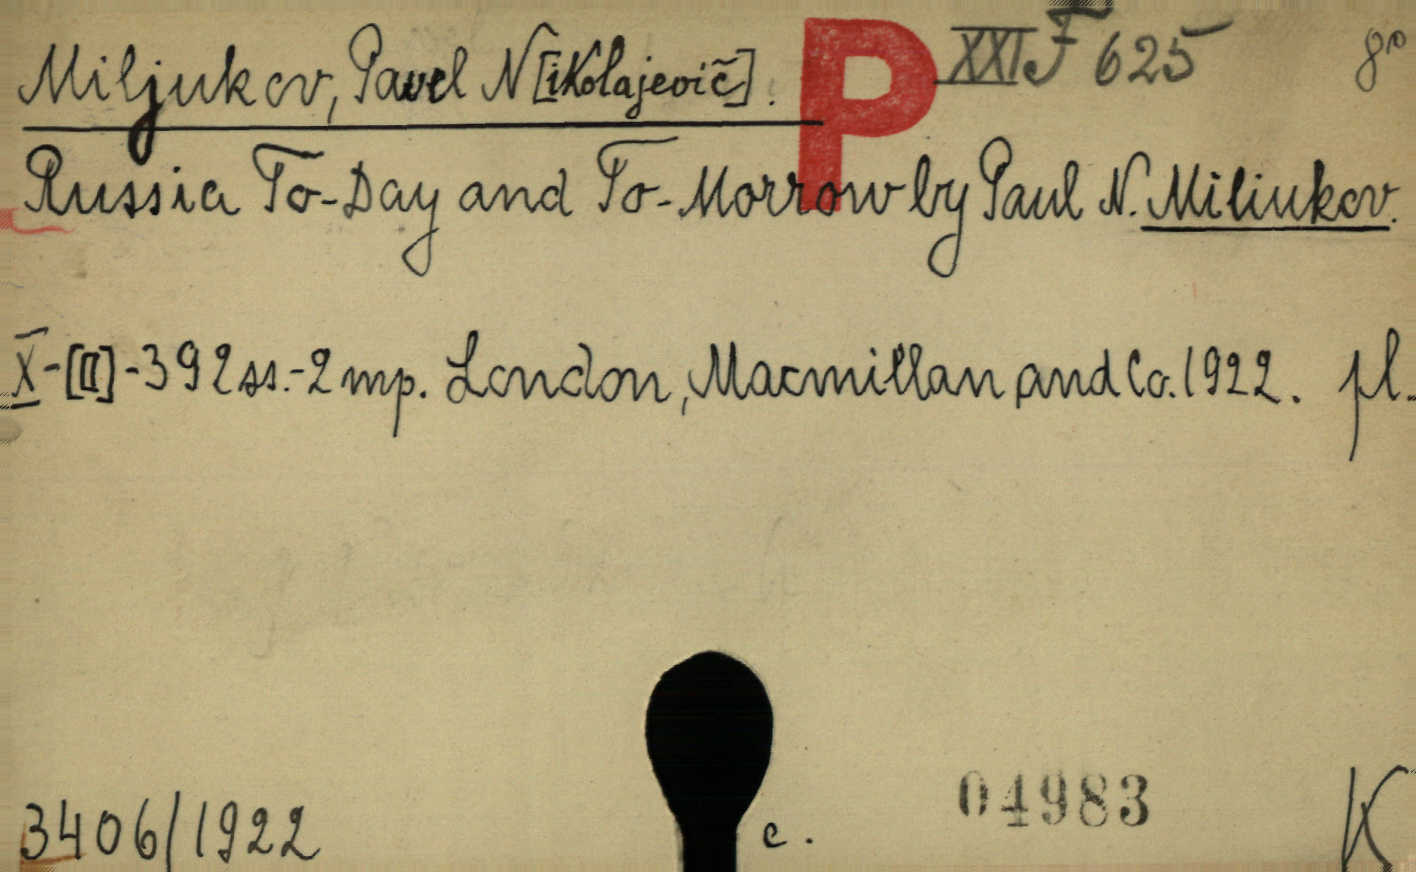 Miljukov, Pavel N[ikolajevič]. P XXI F 625 8°
Russia To-Day and To-Morrow by Paul N. Miliukov.
X-[II]-392 ss.-2 mp. London, Macmillan and Co. 1922. pl.
3406/1922 c. 04983 K